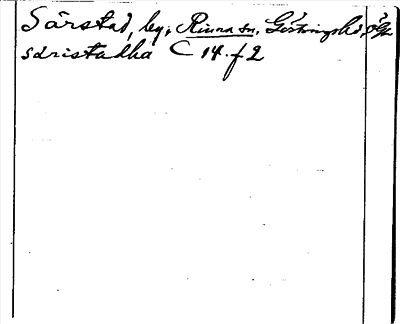 Särstad, by, Rinna sn, Göstringshd, Ögl
säristadha C 14. f 2